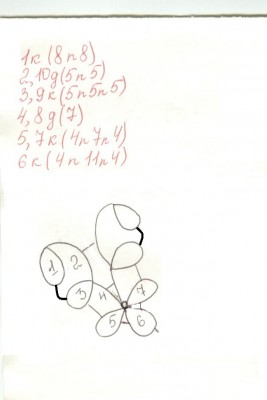 1к (8п8)
2,10д(5п5)
3,9к(5п5п5)
4,8д(7)
5,7к(4п7п4)
6к(4п11п4)
1
2
3
4
7
5
6